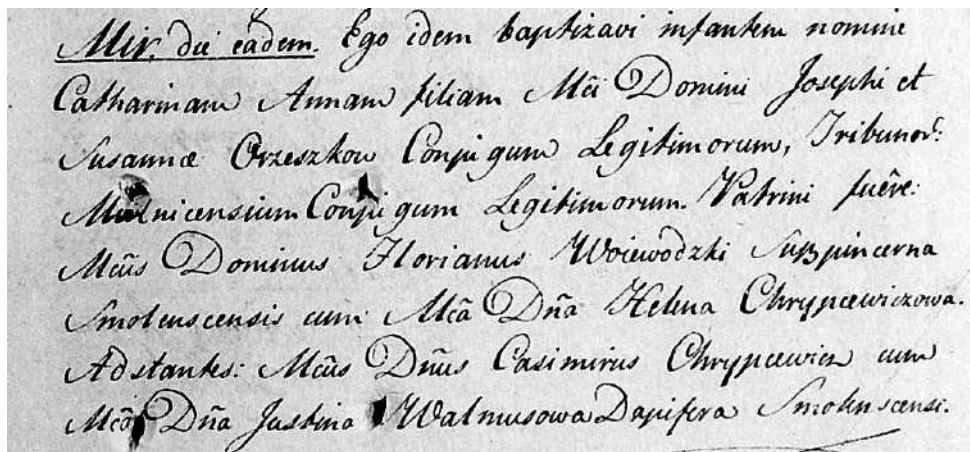 Mir. die eadem. Ego idem baptizavi infantem nomine
Catharinam Annam filiam Mci Domini Josephi et
Susannæ Orzeszkow Conjugum Legitimorum, Tribunor:
Mielnicensium Conjugum Legitimorum. Patrini fuêre:
Mcûs Dominus Florianus Woiewodzki Subpincerna
Smolenscensis cum Mcâ Dña Helena Chrypcewiczowa.
Adstantes: Mcûs Dñus Casimirus Chrypcewicz cum
Mcâ Dña Justina Walmusowa Dapifera Smolenscensi.